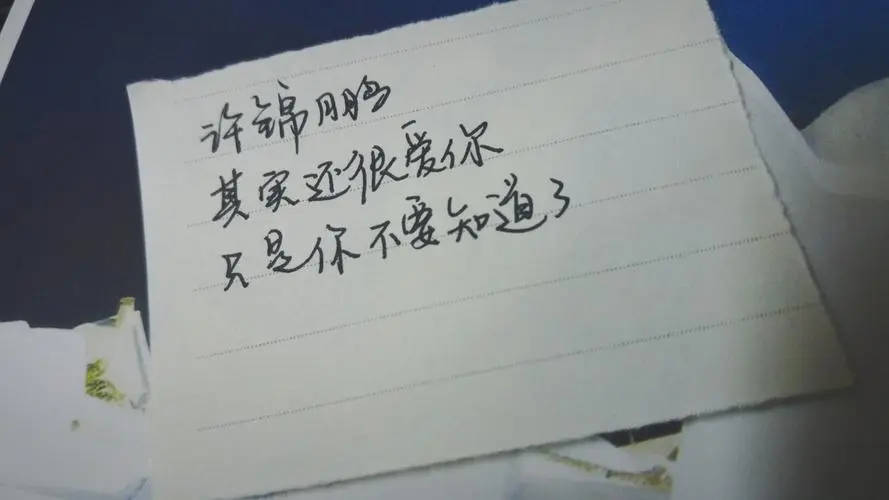 许锦月鹏
其实还很爱你
只是你不要知道了